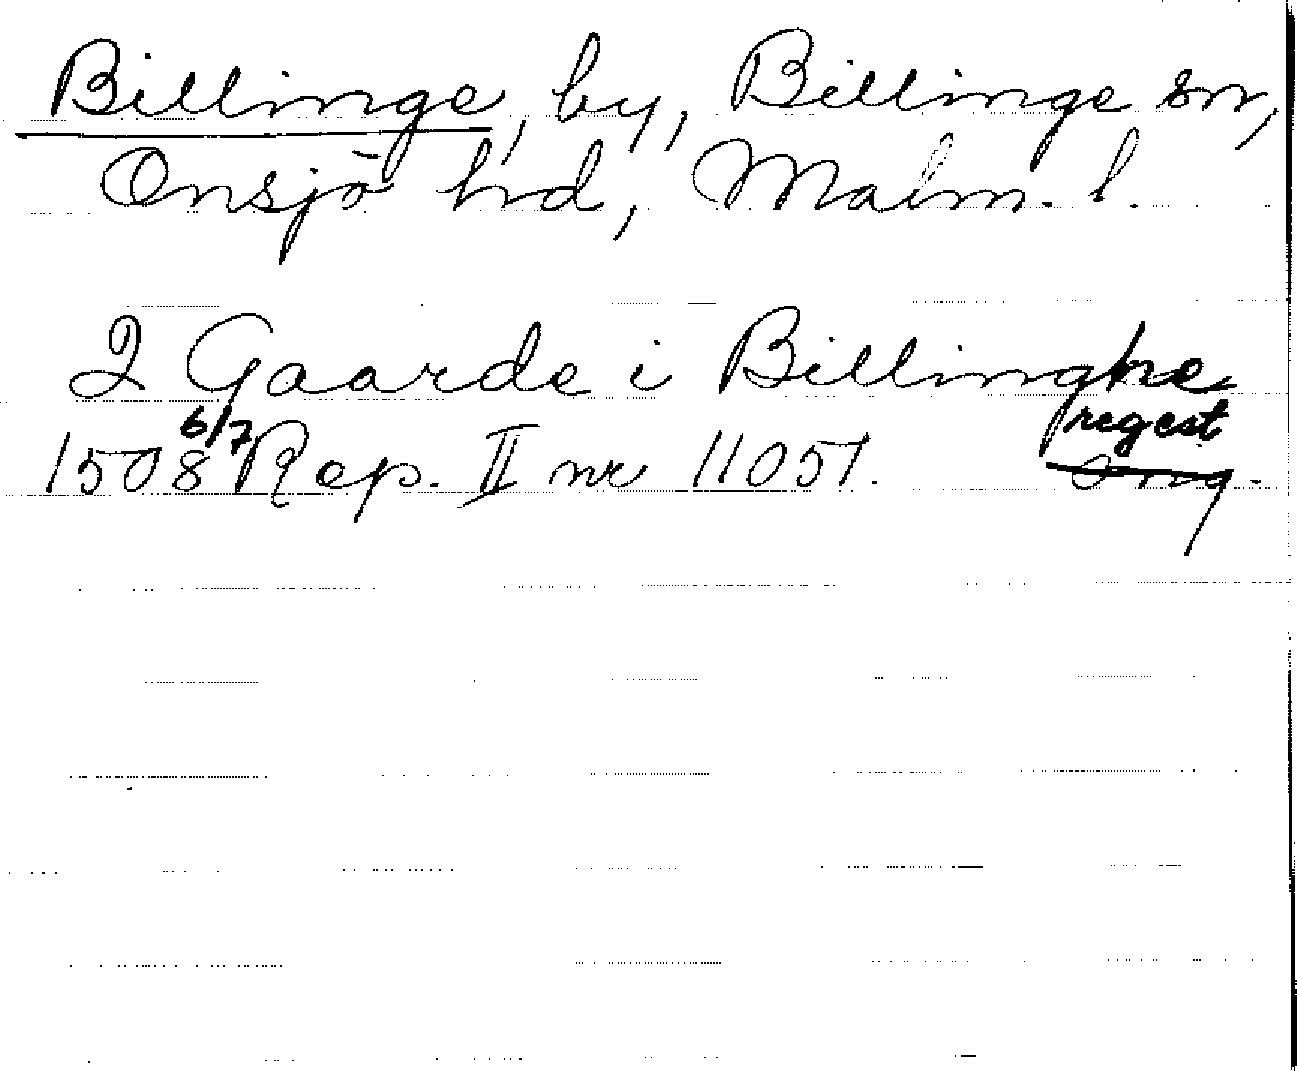 Billinge, by, Billinge sn,
Onsjö hd, Malm. l.
2 Gaarde i Billinghe
1508 6/7 Rep. II nr 11051. regest
Orig.